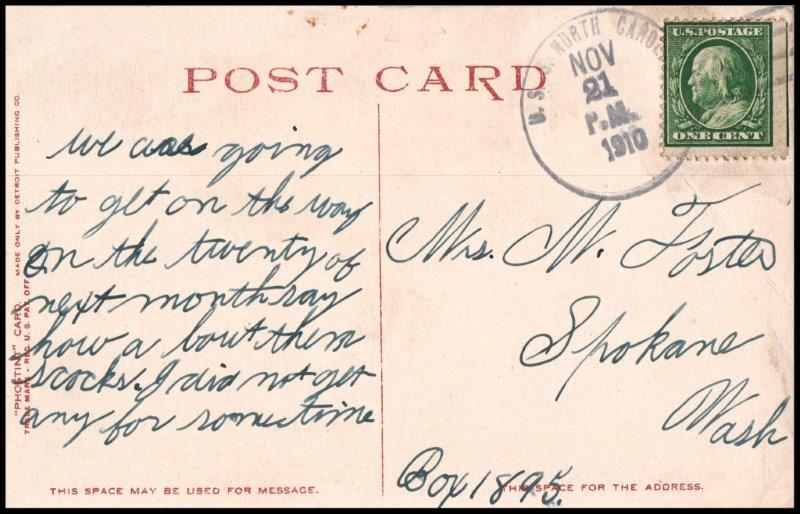 POST CARD
U.S.S. NORTH CAROL
NOV
21
P.M.
1910
U.S. POSTAGE
ONE CENT
we was going
to get on the way
on the twenty of
next month say
how a bout them
socks. I did not get
any for some time
Mrs. W. Foster
Spokane
Wash
Box 1895.
"PHOSTINT" CARD. MADE ONLY BY DETROIT PUBLISHING CO.
TRADE MARK - REG. U. S. PAT. OFF.
THIS SPACE MAY BE USED FOR MESSAGE.
THIS SPACE FOR THE ADDRESS.